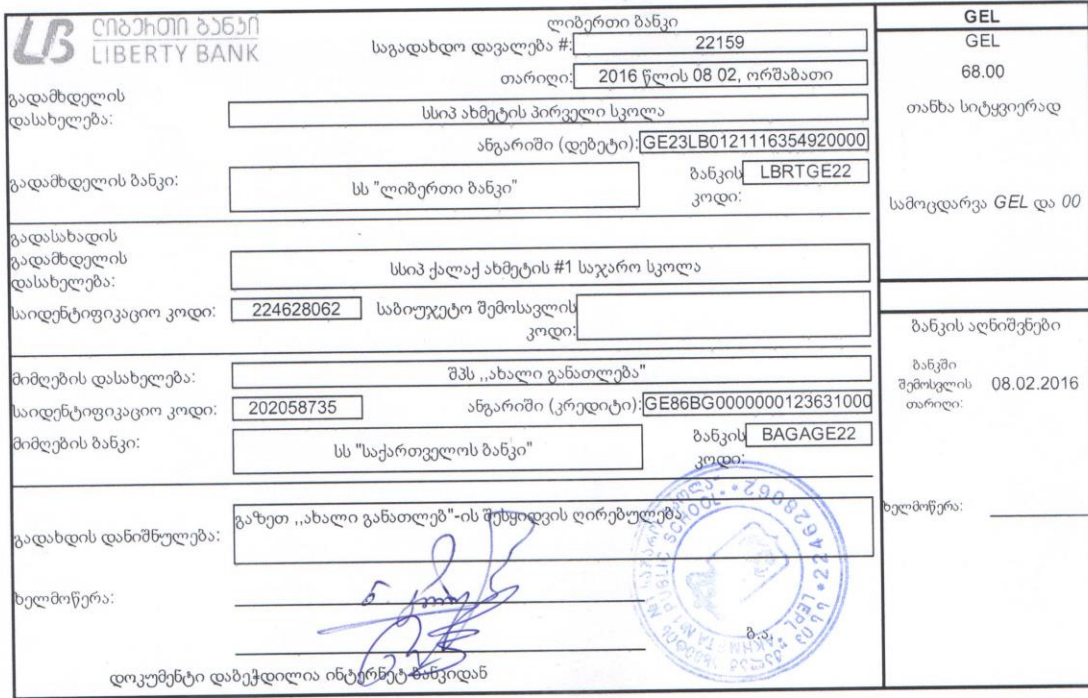 ლიბერთი ბანკი
LIBERTY BANK
ლიბერთი ბანკი
საგადახდო დავალება #: 22159
თარიღი: 2016 წლის 08 02, ორშაბათი
გადამხდელის
დასახელება:
სსიპ ახმეტის პირველი სკოლა
ანგარიში (დებეტი): GE23LB0121116354920000
გადამხდელის ბანკი: სს "ლიბერთი ბანკი" ბანკის LBRTGE22
კოდი:
გადასახადის
გადამხდელის
დასახელება:
სსიპ ქალაქ ახმეტის #1 საჯარო სკოლა
საიდენტიფიკაციო კოდი: 224628062 საბიუჯეტო შემოსავლის
კოდი:
მიმღების დასახელება: შპს ,,ახალი განათლება"
საიდენტიფიკაციო კოდი: 202058735 ანგარიში (კრედიტი): GE86BG0000000123631000
მიმღების ბანკი: სს "საქართველოს ბანკი" ბანკის BAGAGE22
კოდი:
გადახდის დანიშნულება: გაზეთ ,,ახალი განათლებ"-ის შესყიდვის ღირებულება
ხელმოწერა:
ბ.ა.
დოკუმენტი დაბეჭდილია ინტერნეტ-ბანკიდან
GEL
GEL
68.00
თანხა სიტყვიერად
სამოცდარვა GEL და 00
ბანკის აღნიშვნები
ბანკში
შემოსვლის 08.02.2016
თარიღი:
ხელმოწერა:
224628062
LEPL AKHMETA №1 PUBLIC SCHOOL